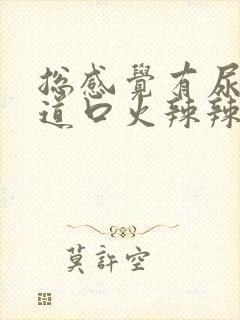 總感覺有尿
道口火辣辣
莫許空